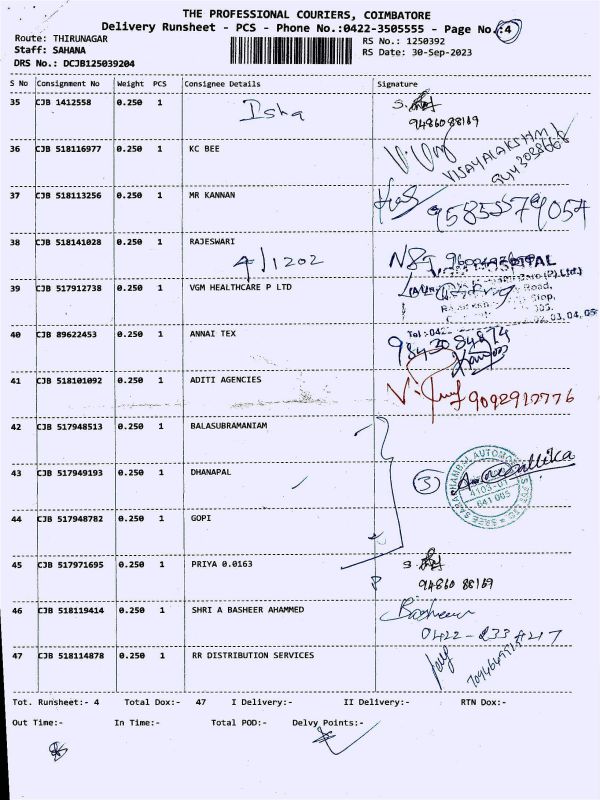 THE PROFESSIONAL COURIERS, COIMBATORE
Delivery Runsheet - PCS - Phone No.:0422-3505555 - Page No.:4
Route: THIRUNAGAR
RS No.: 1250392
Staff: SAHANA
RS Date: 30-Sep-2023
DRS No.: DCJB125039204
S No Consignment No Weight PCS Consignee Details Signature
35 CJB 1412558 0.250 1 Isha
9486088169
36 CJB 518116977 0.250 1 KC BEE
VIJAYALAKSHMI
37 CJB 518113256 0.250 1 MR KANNAN
9585579054
38 CJB 518141028 0.250 1 RAJESWARI
4/1202
39 CJB 517912738 0.250 1 VGM HEALTHCARE P LTD
Road,
02, 03, 04, 05
40 CJB 89622453 0.250 1 ANNAI TEX
Tel :0422
9842084874
41 CJB 518101092 0.250 1 ADITI AGENCIES
9092912776
42 CJB 517948513 0.250 1 BALASUBRAMANIAM
43 CJB 517949193 0.250 1 DHANAPAL
3
641 005
44 CJB 517948782 0.250 1 GOPI
45 CJB 517971695 0.250 1 PRIYA 0.0163
94860 88169
46 CJB 518119414 0.250 1 SHRI A BASHEER AHAMMED
Basheer
0422-233 4217
47 CJB 518114878 0.250 1 RR DISTRIBUTION SERVICES
Tot. Runsheet:- 4 Total Dox:- 47 I Delivery:- II Delivery:- RTN Dox:-
Out Time:- In Time:- Total POD:- Delvy Points:-